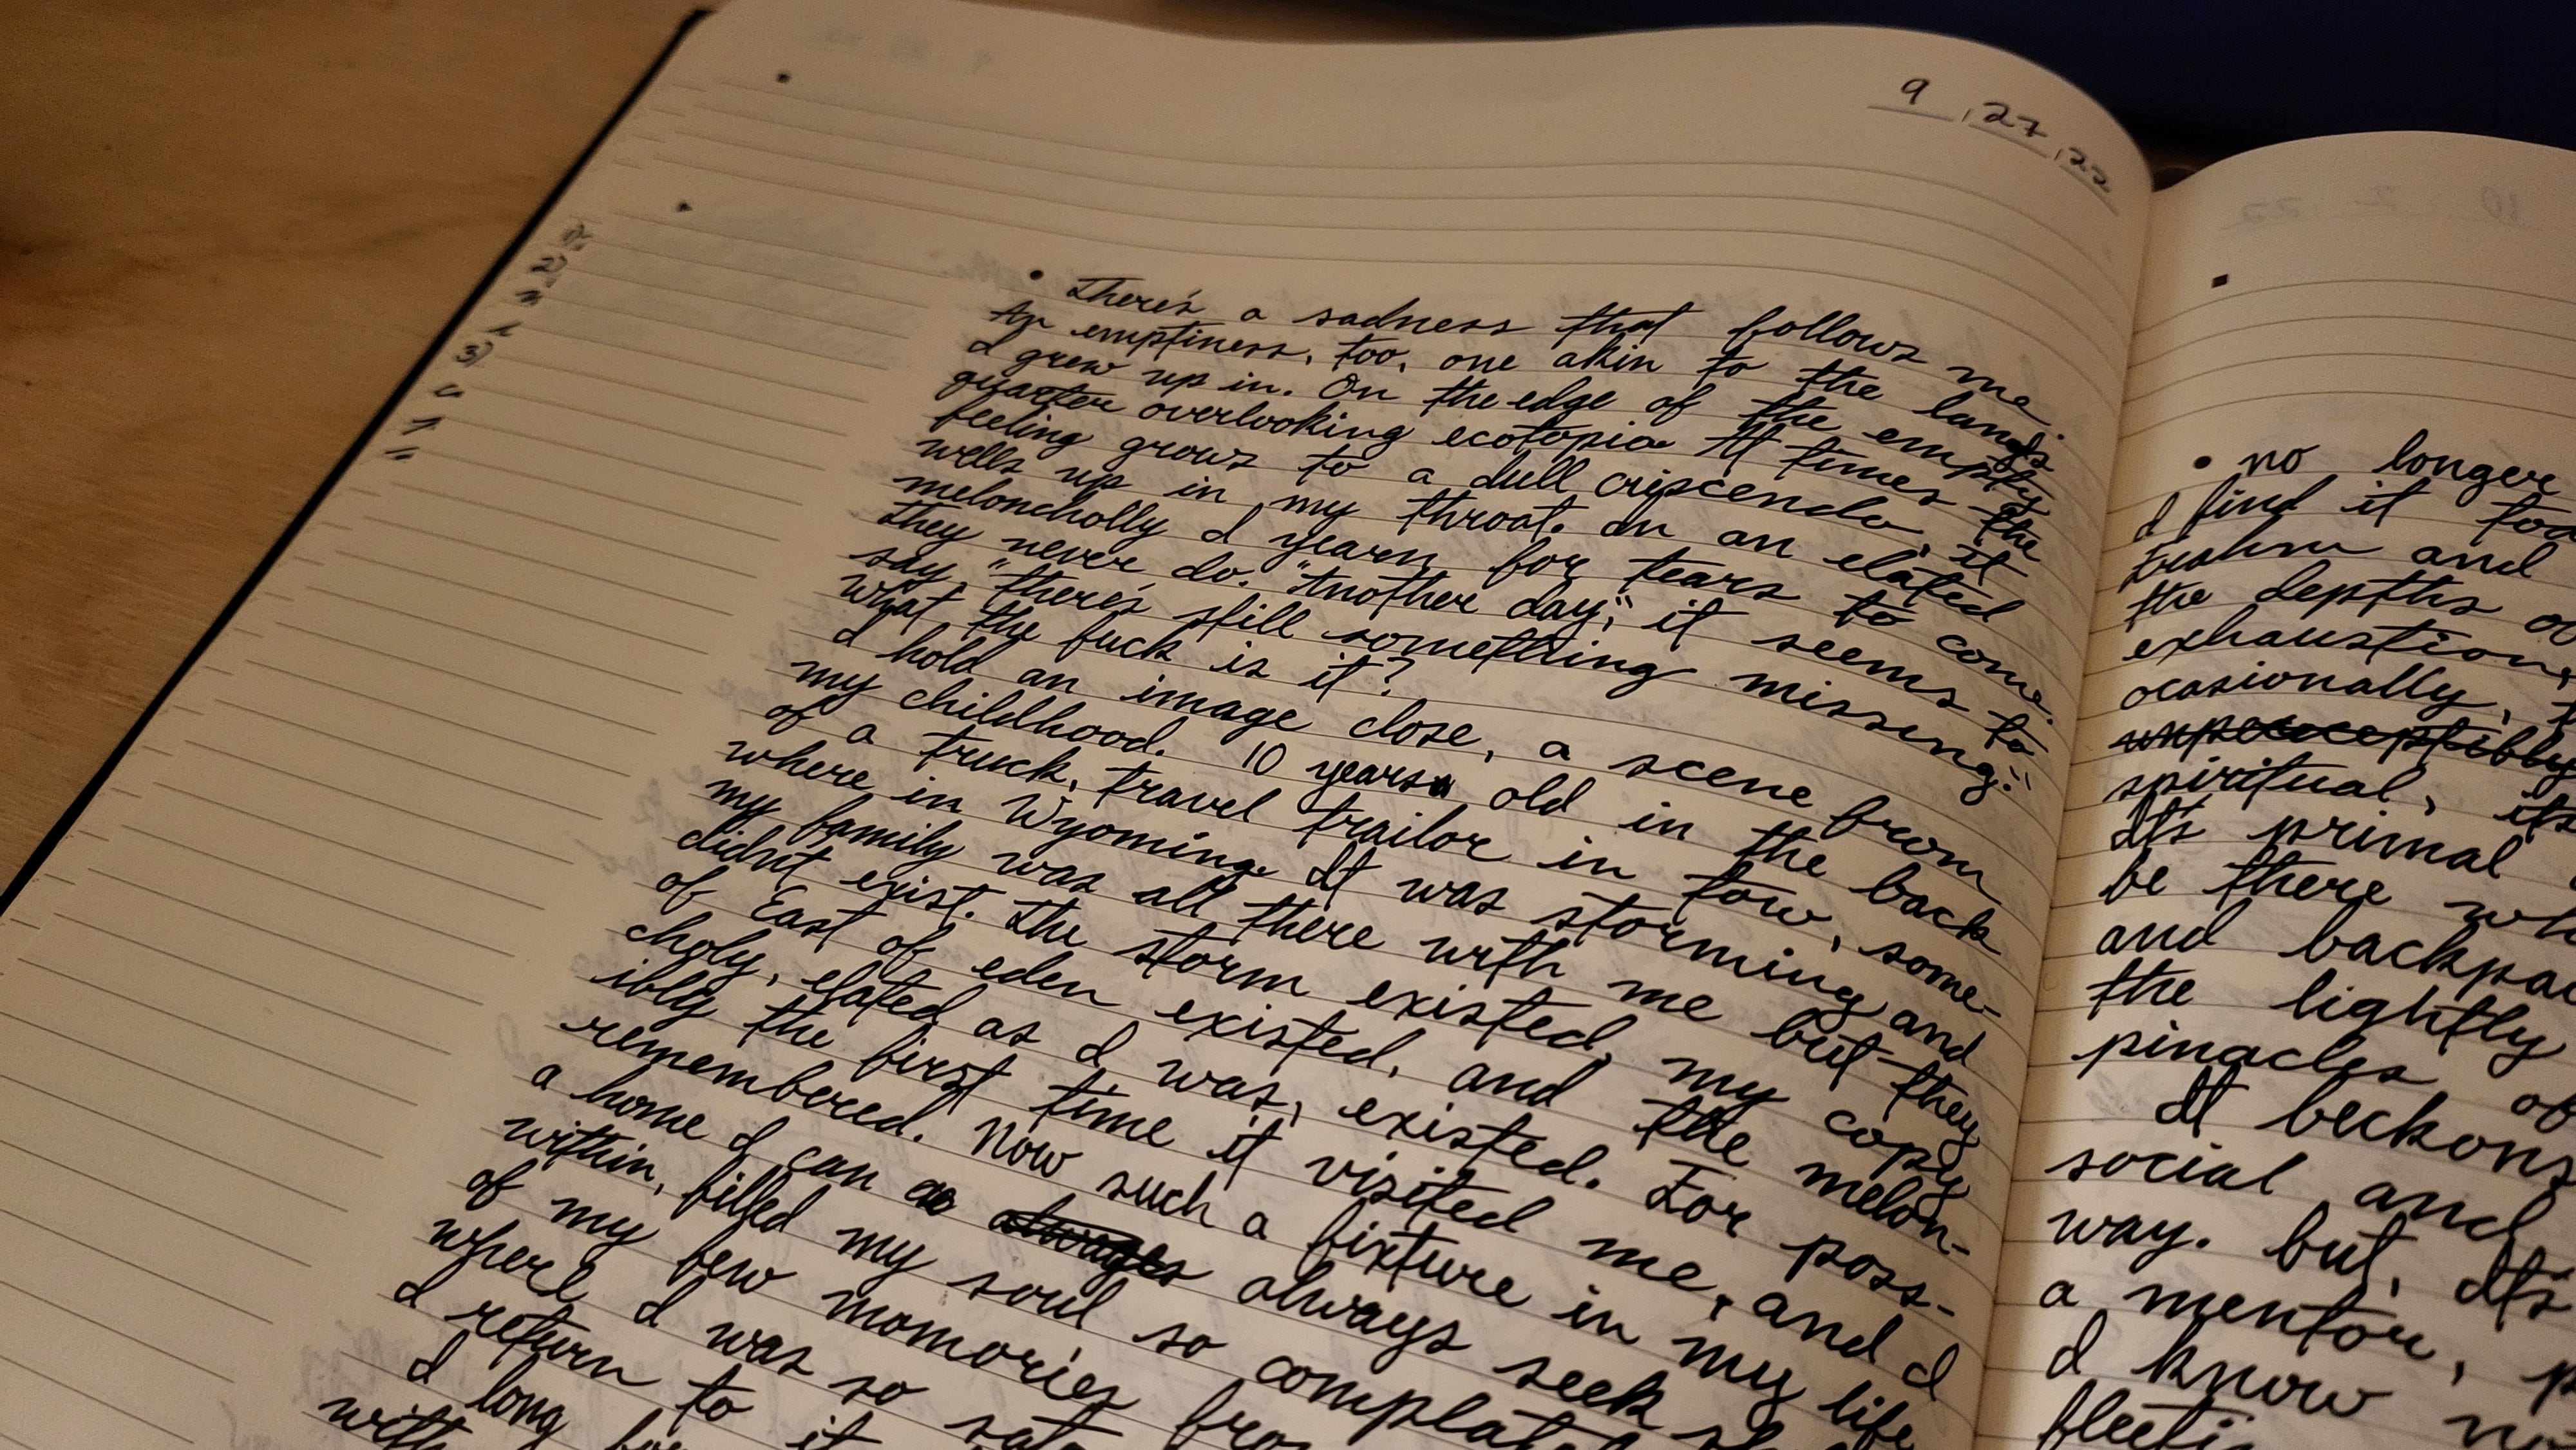 9, 27, 22
1)
2)
3)
• There's a sadness that follows me.
An emptiness, too, one akin to the lands
I grew up in. On the edge of the empty
quarter overlooking ecotopia At times the
feeling grows to a dull criscendo, it
wells up in my throat. In an elated
meloncholly I yearn for tears to come.
They never do. "Another day", it seems to
say, "there's still something missing."
What the fuck is it?
I hold an image close, a scene from
my childhood. 10 years old in the back
of a truck, travel trailor in tow, some-
where in Wyoming. It was storming and
my family was all there with me but they
didn't exist. The storm existed, my copy
of East of eden existed, and the melon-
choly, elated as I was, existed. For poss-
ibly the first time it visited me, and I
remembered. Now such a fixture in my life
a home I can always seek
within, filled my soul so
of my few momories
where I was so
I return to it
I long
with
• no longer
I find it
and
the depths
exhaustion,
ocasionally,
unpercceptibly
spiritual, its
It's primal
be there
and
the lightly
pinacles of
It beckons
social and
way. but, It's
a mentor,
I know